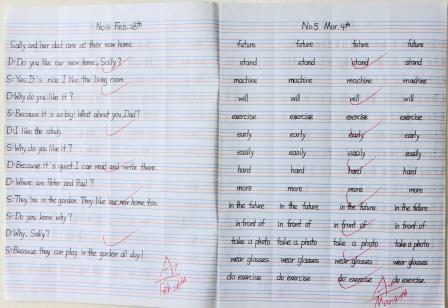 No.4 Feb.28th
Sally and her dad are at their new home.
D: Do you like our new home, Sally?
S: Yes. It's nice. I like the living room.
D: Why do you like it?
S: Because it's so big! What about you, Dad?
D: I like the study.
S: Why do you like it?
D: Because it's quiet. I can read and write there.
D: Where are Peter and Paul?
S: They're in the garden. They like our new home too.
S: Do you know why?
D: Why, Sally?
S: Because they can play in the garden all day!
A
Feb.28th
No.5 Mar.4th
future future future future
stand stand stand stand
machine machine machine machine
will will will will
exercise exercise exercise exercise
early early early early
easily easily easily easily
hard hard hard hard
more more more more
in the future in the future in the future in the future
in front of in front of in front of in front of
take a photo take a photo take a photo take a photo
wear glasses wear glasses wear glasses wear glasses
do exercise do exercise do exercise do exercise
A